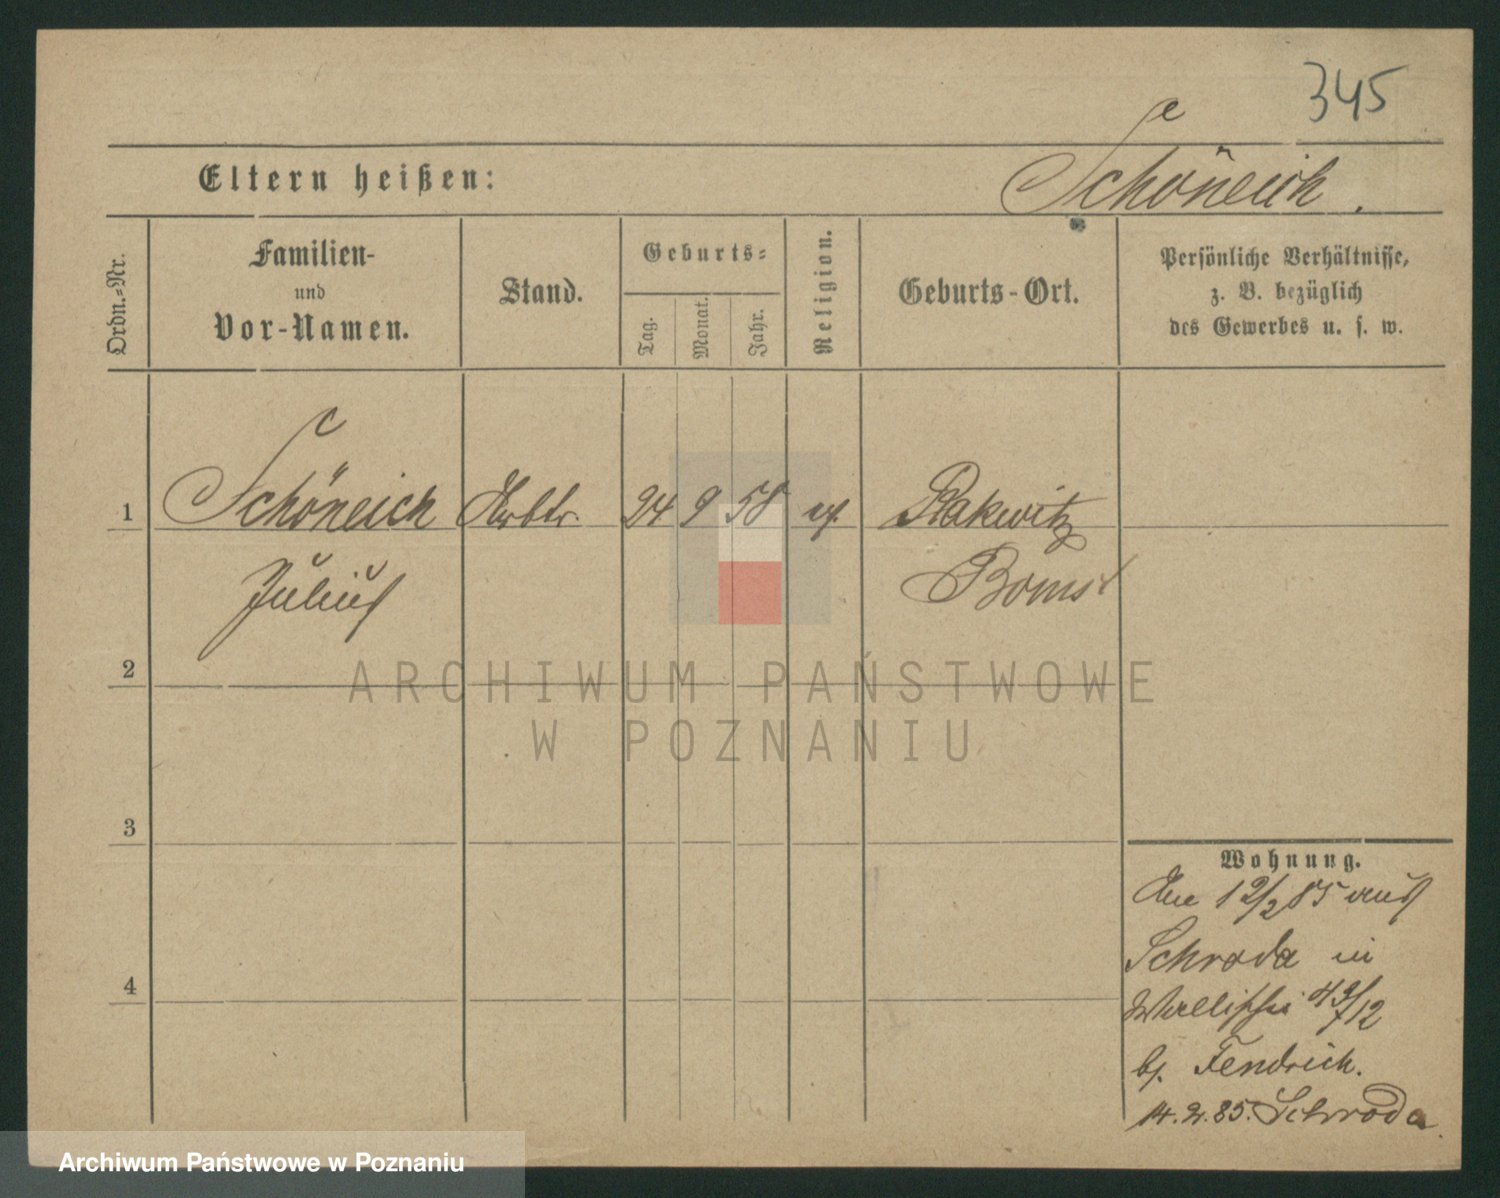 345
Eltern heißen:
Schöneich.
Ordn.-Nr.
Familien-
und
Vor-Namen.
Stand.
Geburts-
Tag.
Monat.
Jahr.
Religion.
Geburts-Ort.
Persönliche Verhältnisse,
z. B. bezüglich
des Gewerbes u. s. w.
1
Schöneich
Arbtr.
24
9
58
ev.
Rakwitz
Julius
Bomst
2
ARCHIWUM PAŃSTWOWE
W POZNANIU
3
Wohnung.
12/2 85 aus
Schroda in
4
Wallischei
b/. Fendrich.
14.2.85. Schroda.
Archiwum Państwowe w Poznaniu